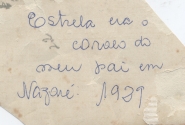 Estrela era o
barco do
meu pai em
Nazaré. 1929